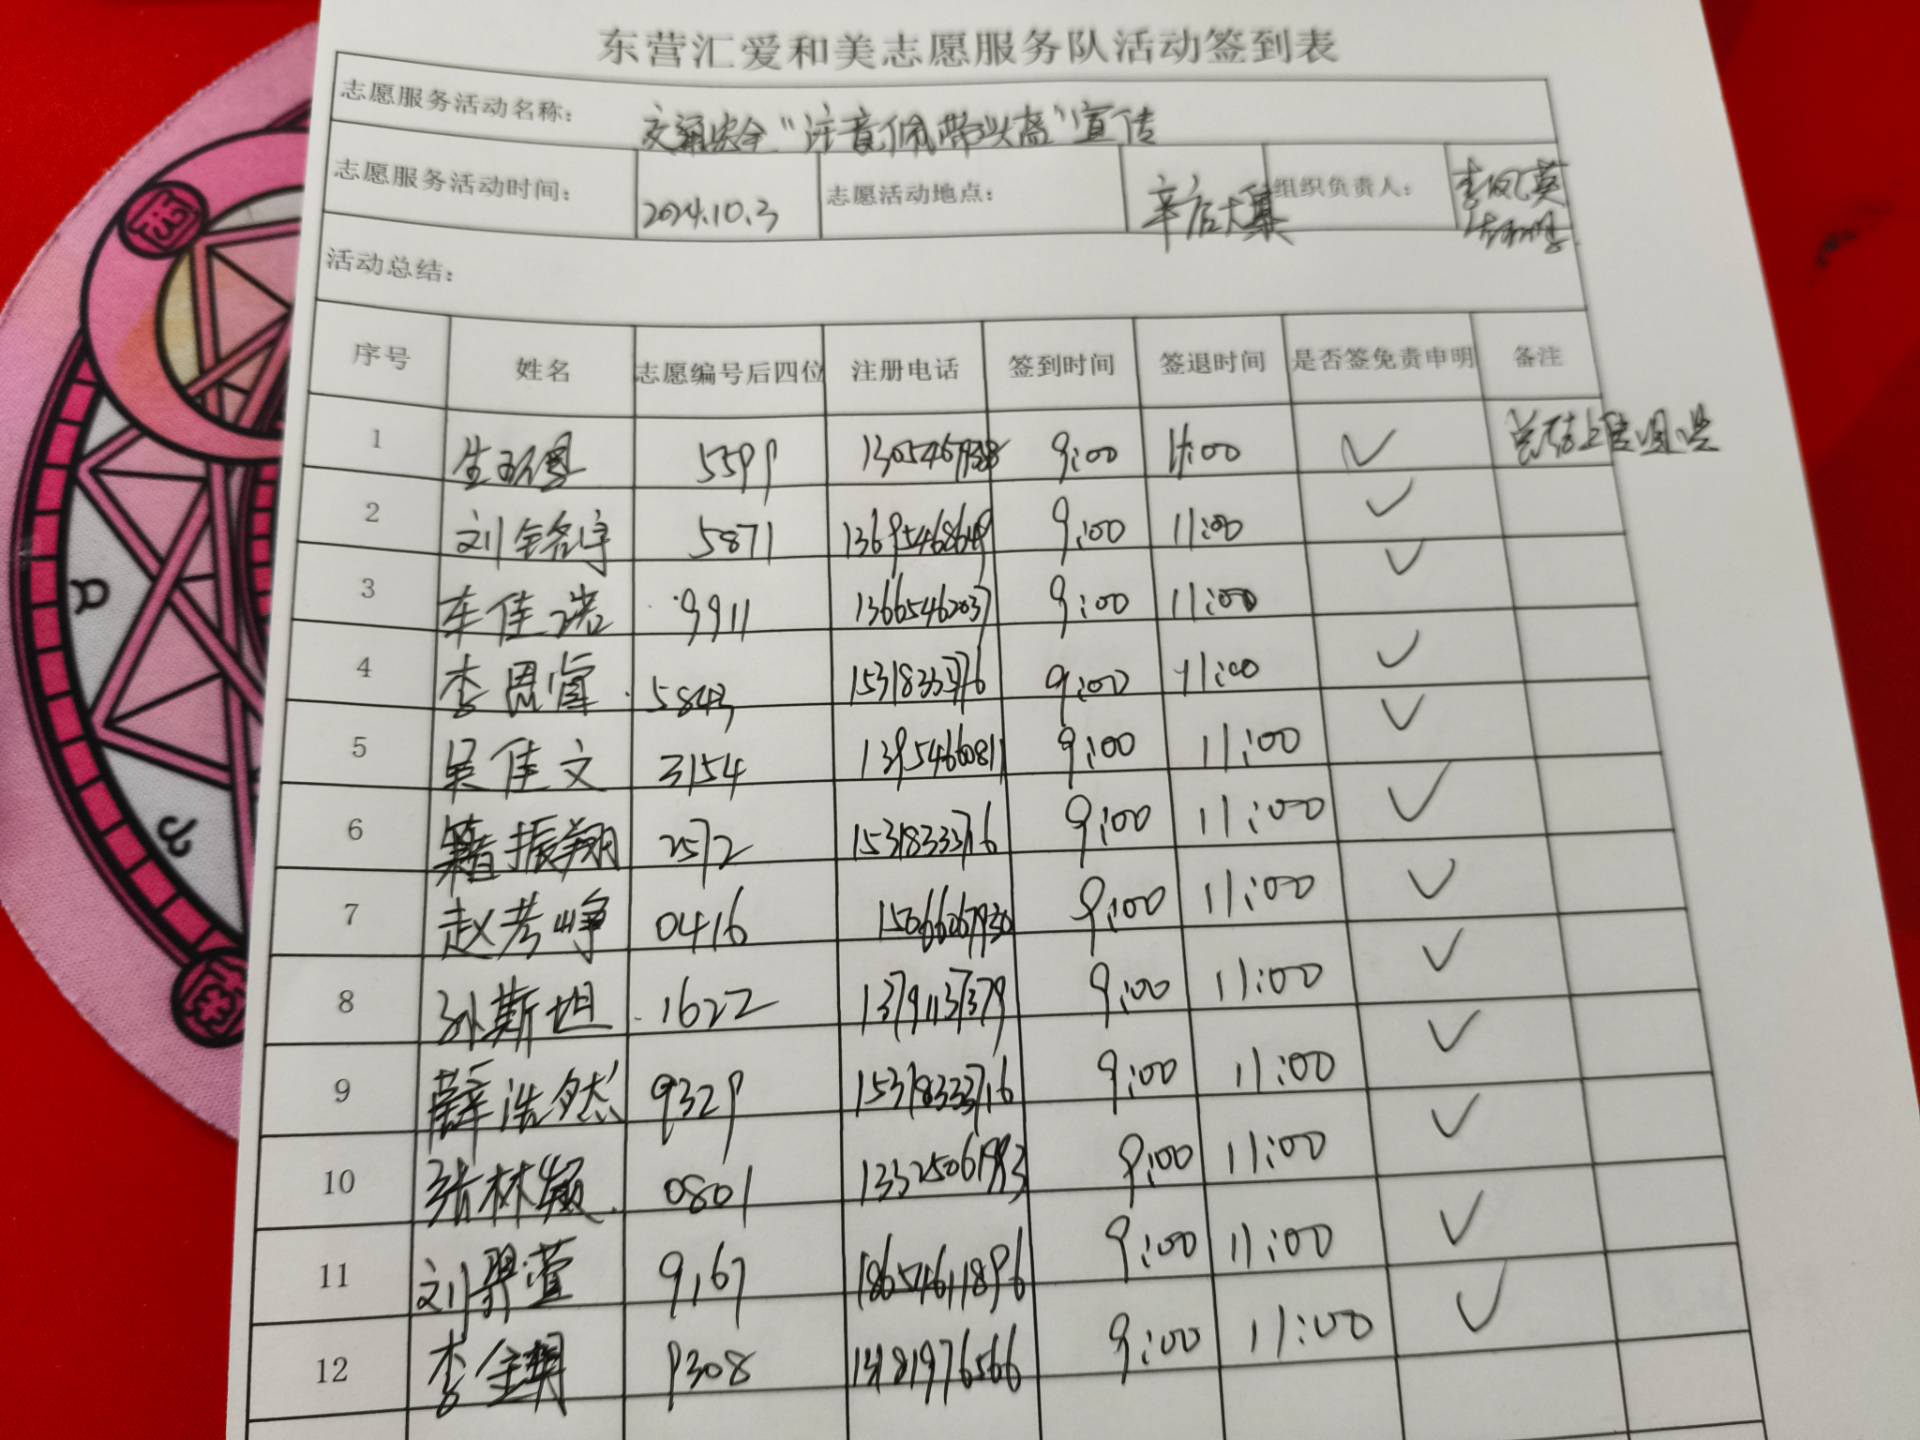 东营汇爱和美志愿服务队活动签到表
志愿服务活动名称： 交通安全“注意佩带头盔”宣传
志愿服务活动时间： 2024.10.3 志愿活动地点： 辛店大集 组织负责人： 李凤英
活动总结：
序号 姓名 志愿编号后四位 注册电话 签到时间 签退时间 是否签免责申明 备注
1 5599 9:00 11:00 ✓
2 刘铭宇 5871 13695468649 9:00 11:00 ✓
3 车佳诺 9911 13665462037 9:00 11:00 ✓
4 李恩睿 5843 15318333716 9:00 11:00 ✓
5 吴佳文 3154 13954660811 9:00 11:00 ✓
6 籍振翔 2572 15318333716 9:00 11:00 ✓
7 赵芳峥 0416 15066067930 9:00 11:00 ✓
8 孙斯坦 1622 13791137379 9:00 11:00 ✓
9 薛浩然 9329 15318333716 9:00 11:00 ✓
10 张林颖 0801 13325061993 9:00 11:00 ✓
11 刘羿萱 9167 18654611896 9:00 11:00 ✓
12 李金明 9308 13181976566 9:00 11:00 ✓